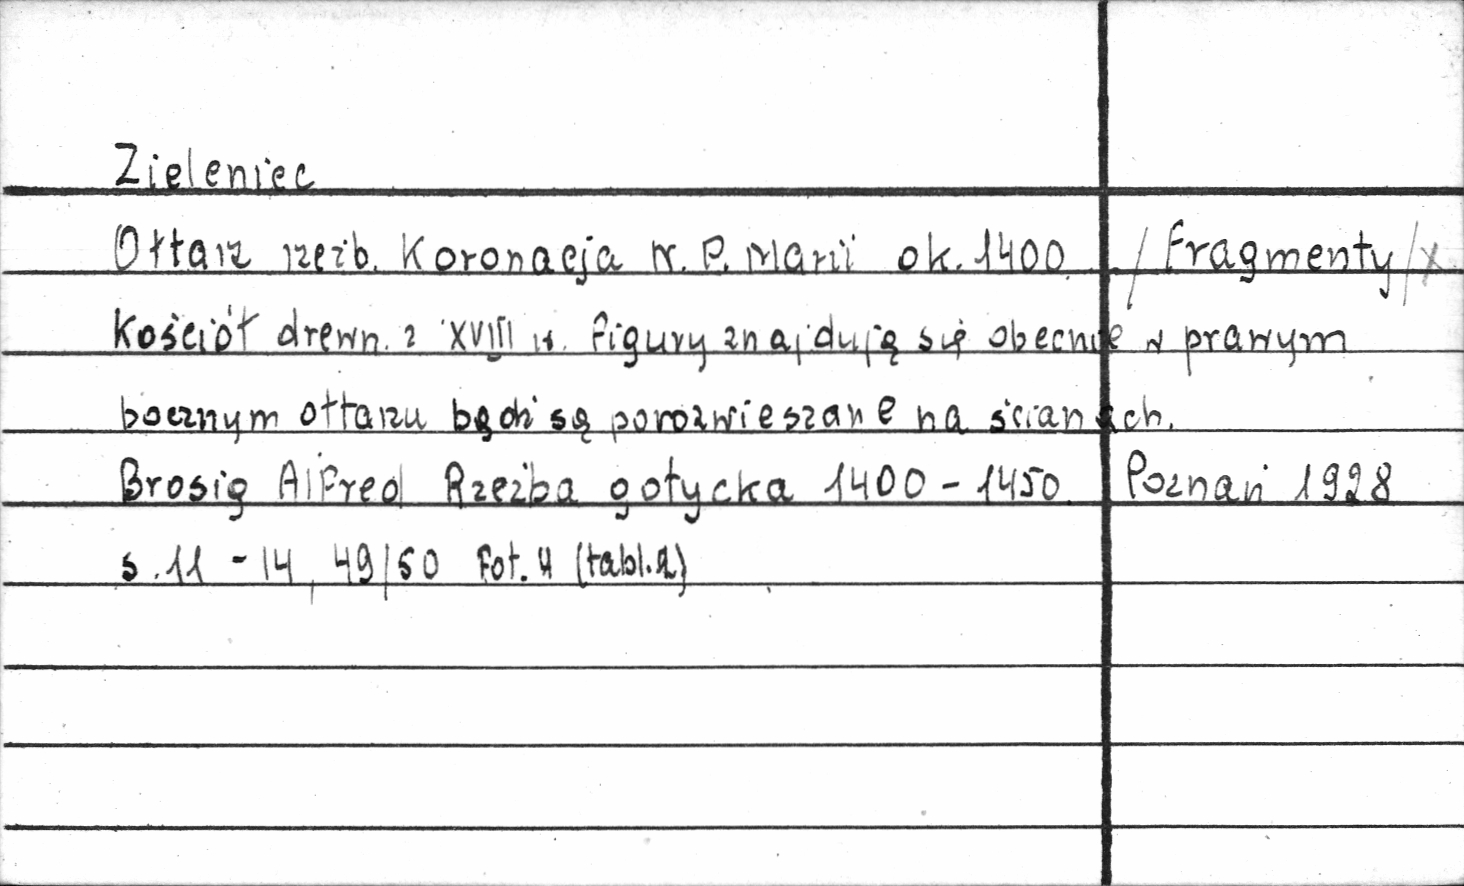 Zieleniec
Ołtarz rzeźb. Koronacja N. P. Marii ok. 1400 /fragmenty/x
Kościół drewn. z XVIII w. figury znajdują się obecnie w prawym
bocznym ołtarzu bądź są porozwieszane na ścianach.
Brosig Alfred Rzeźba gotycka 1400 - 1450 Poznań 1928
s. 11 - 14, 49/50 fot. 4 (tabl. 2)